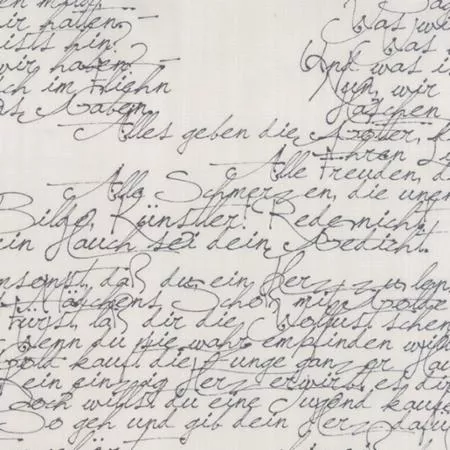 wir hatten. -
ists hin?
wir haben? -
ich im Flieh'n
Das
Was
Und was is
Nun, wir
Haschen
Alles geben die Götter,
Ihren
Alle Freuden, d
Alle Schmerzen, die unen
Bilde, Künstler! Rede nicht!
ein Hauch sei dein Gedicht.
msonst, daß du ein Herz zu len
Mädchens Schoß mit Golde
Fürst, laß dir die Wollust schen
Wenn du sie wahr empfinden will
Gold kauft die Zunge ganzer Hau
Kein einzig Herz erwirbt es dir
Doch willst du eine Tugend kauf
So geh und gib dein Herz dafü